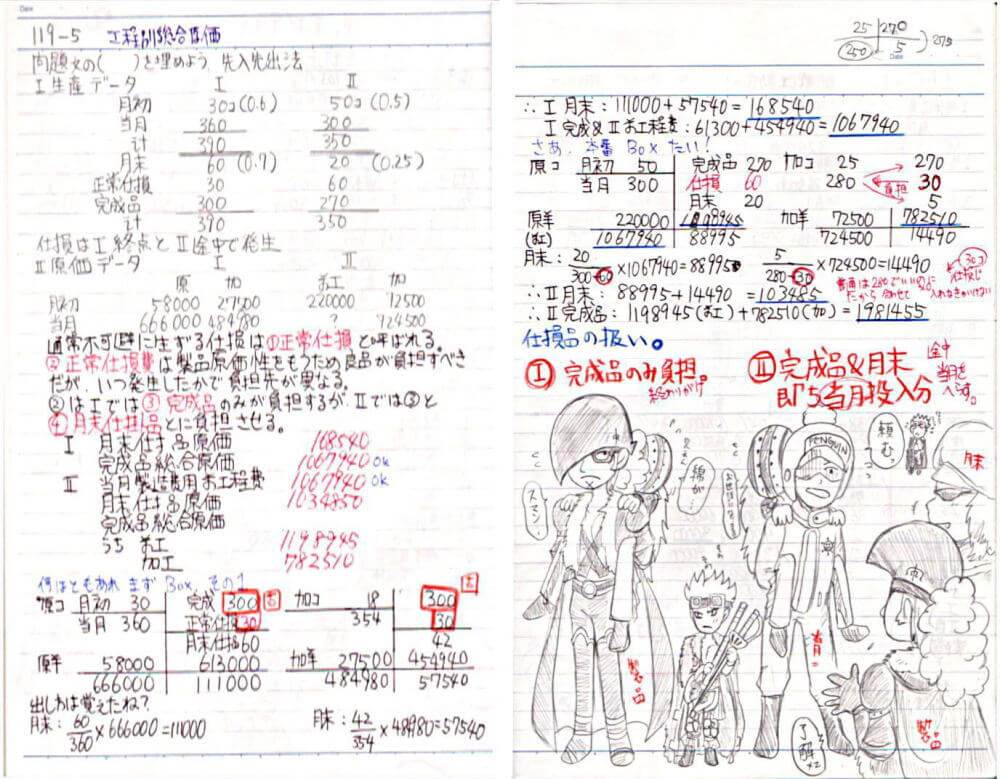 Date
119-5 工程別総合原価
問題文の( )を埋めよう 先入先出法
I 生産データ I II
月初 30コ(0.6) 50コ(0.5)
当月 360 300
計 390 350
月末 60(0.7) 20(0.25)
正常仕損 30 60
完成品 300 270
計 390 350
仕損はI終点とII途中で発生
II 原価データ I II
原 加 前工 加
月初 58000 27500 220000 72500
当月 666000 484980 ? 724500
通常不可避に生ずる仕損は①正常仕損と呼ばれる。
②正常仕損費は製品原価性をもつため良品が負担すべき
だが、いつ発生したかで負担先が異なる。
②はIでは③完成品のみが負担するが、IIでは③と
④月末仕掛品とに負担させる。
I 月末仕掛品原価 168540
完成品総合原価 1067940 ok
II 当月製造費用前工程費 1067940 ok
月末仕掛品原価 1034850
完成品総合原価
うち 前工 1198945
加工 782510
何はともあれ まず Box、その1
原コ 月初 30 完成 300 加コ 18 300
当月 360 正常仕損 30 354 30
月末仕掛 60 42
原¥ 58000 613000 加¥ 27500 454940
666000 111000 484980 57540
出し方は覚えたね?
月末: 60/360×666000=111000 月末: 42/354×484980=57540
25 270
250 5 275
Date
∴ I 月末: 111000+57540=168540
I 完成&II前工程費: 61300+454940=1067940
さあ、本番 Box たい!
原コ 月初 50 完成品 270 加コ 25 270
当月 300 仕損 60 280 負担 30
月末 20 5
原¥ 220000 1198945 加¥ 72500 782510
(前工) 1067940 88995 724500 14490
月末: 20/300-60×1067940=88995 5/280-30×724500=14490
30コ
仕損じ
普通は280でいいの
だから合わせて
入れなきゃいけない
∴II月末: 88995+14490=103485
∴II完成品: 1198945(前工)+782510(加)=1981455
仕損品の扱い。
I 完成品のみ負担。
II 完成品&月末
即ち当月投入分
途中
当月を
へらす。
PENGUIN
頼む。
月末
スマン…
製品
青=
製品
了解×2